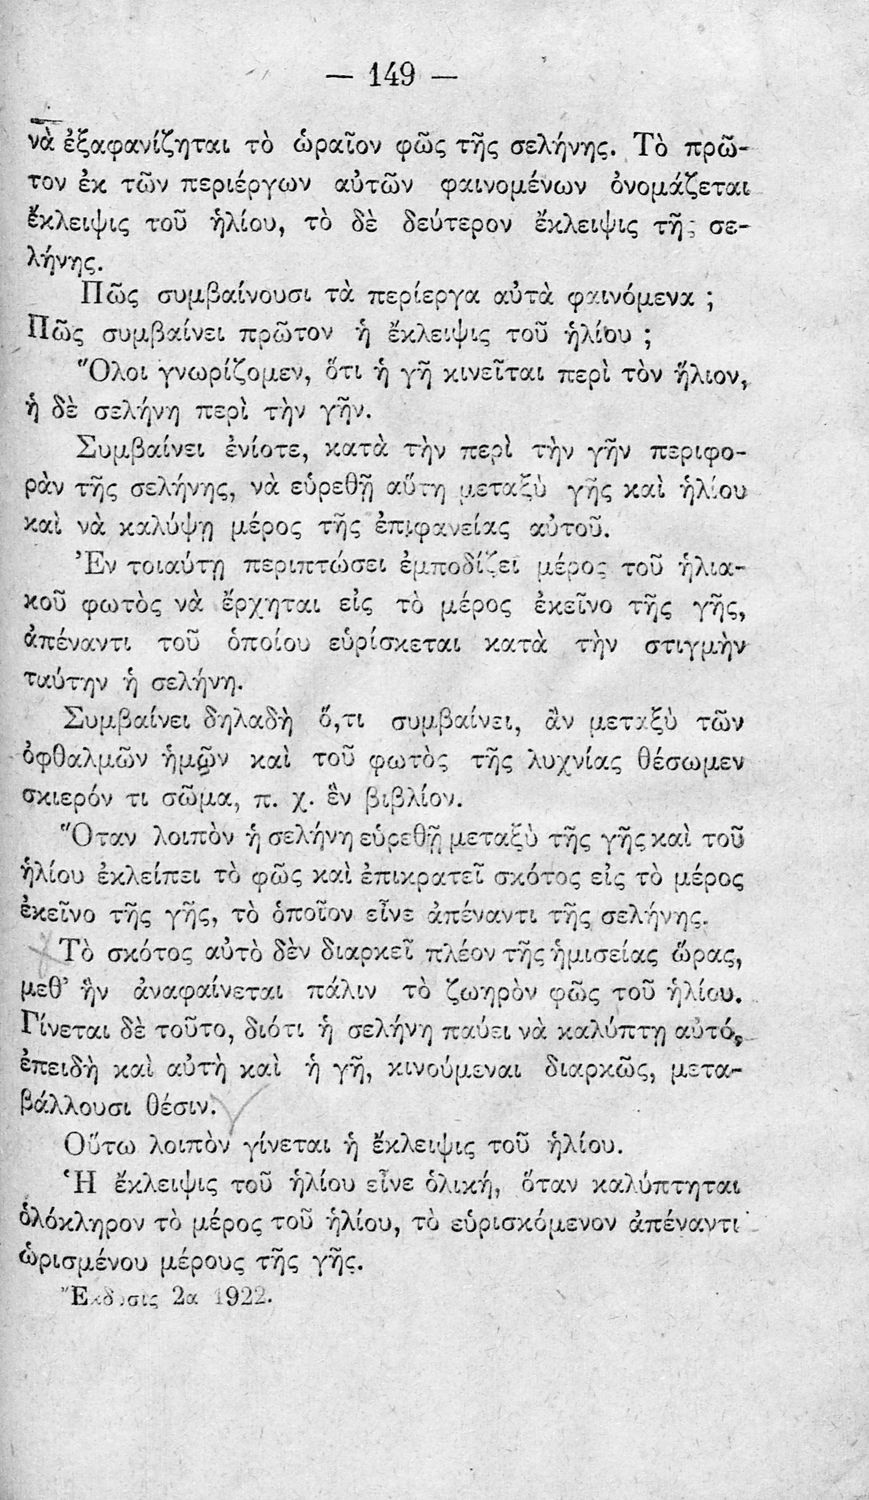 — 149 —
νὰ ἐξαφανίζηται τὸ ὡραῖον φῶς τῆς σελήνης. Τὸ πρῶ-
τον ἐκ τῶν περιέργων αὐτῶν φαινομένων ὀνομάζεται
ἔκλειψις τοῦ ἡλίου, τὸ δὲ δεύτερον ἔκλειψις τῆς σε-
λήνης.
Πῶς συμβαίνουσι τὰ περίεργα αὐτὰ φαινόμενα ;
Πῶς συμβαίνει πρῶτον ἡ ἔκλειψις τοῦ ἡλίου ;
Ὅλοι γνωρίζομεν, ὅτι ἡ γῆ κινεῖται περὶ τὸν ἥλιον,
ἡ δὲ σελήνη περὶ τὴν γῆν.
Συμβαίνει ἐνίοτε, κατὰ τὴν περὶ τὴν γῆν περιφο-
ρὰν τῆς σελήνης, νὰ εὑρεθῇ αὕτη μεταξὺ γῆς καὶ ἡλίου
καὶ νὰ καλύψῃ μέρος τῆς ἐπιφανείας αὐτοῦ.
Ἐν τοιαύτῃ περιπτώσει ἐμποδίζει μέρος τοῦ ἡλια-
κοῦ φωτὸς νὰ ἔρχηται εἰς τὸ μέρος ἐκεῖνο τῆς γῆς,
ἀπέναντι τοῦ ὁποίου εὑρίσκεται κατὰ τὴν στιγμὴν
ταύτην ἡ σελήνη.
Συμβαίνει δηλαδὴ ὅ,τι συμβαίνει, ἂν μεταξὺ τῶν
ὀφθαλμῶν ἡμῶν καὶ τοῦ φωτὸς τῆς λυχνίας θέσωμεν
σκιερόν τι σῶμα, π. χ. ἓν βιβλίον.
Ὅταν λοιπὸν ἡ σελήνη εὑρεθῇ μεταξὺ τῆς γῆς καὶ τοῦ
ἡλίου ἐκλείπει τὸ φῶς καὶ ἐπικρατεῖ σκότος εἰς τὸ μέρος
ἐκεῖνο τῆς γῆς, τὸ ὁποῖον εἶνε ἀπέναντι τῆς σελήνης.
Τὸ σκότος αὐτὸ δὲν διαρκεῖ πλέον τῆς ἡμισείας ὥρας,
μεθ' ἣν ἀναφαίνεται πάλιν τὸ ζωηρὸν φῶς τοῦ ἡλίου.
Γίνεται δὲ τοῦτο, διότι ἡ σελήνη παύει νὰ καλύπτῃ αὐτό,
ἐπειδὴ καὶ αὐτὴ καὶ ἡ γῆ, κινούμεναι διαρκῶς, μετα-
βάλλουσι θέσιν.
Οὕτω λοιπὸν γίνεται ἡ ἔκλειψις τοῦ ἡλίου.
Ἡ ἔκλειψις τοῦ ἡλίου εἶνε ὁλική, ὅταν καλύπτηται
ὁλόκληρον τὸ μέρος τοῦ ἡλίου, τὸ εὑρισκόμενον ἀπέναντι
ὡρισμένου μέρους τῆς γῆς.
Ἔκδοσις 2α 1922.